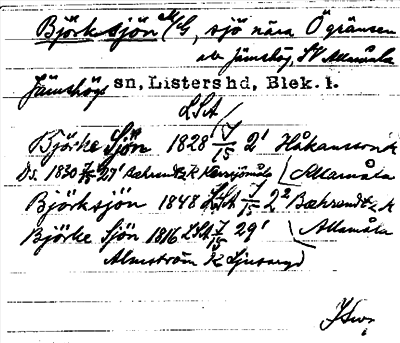 Björksjön M/G, sjö nära Ö gränsen
av Jämshög, SV Allmåla
Jämshögs sn, Listers hd, Blek. l.
LSA
Björke Sjön 1828 7/15 2' Håkansson k
Ds. 1830 7/15 27' Baehrendtz k Allamåla
Björksjön 1848 LSA 7/15 2² Baehrendtz k
Björke Sjön 1816 LSA 7/15 29' Allamåla
Almström k Ljusaryd